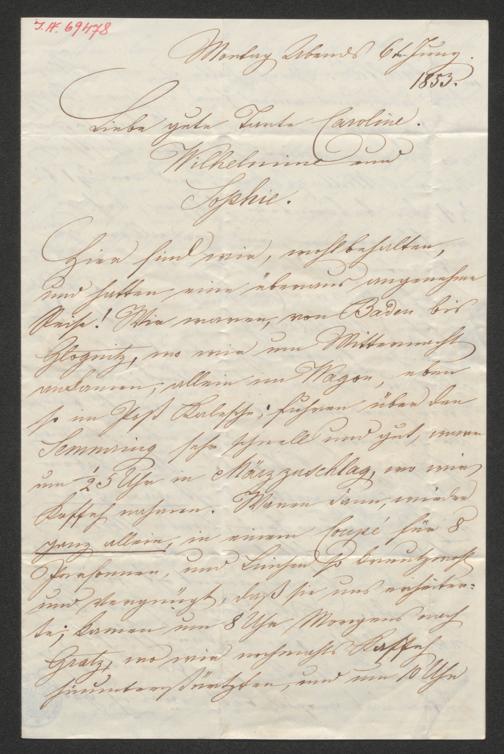 I.N. 69478
Montag Abends 6t Juny.
1853.
Liebe gute Tante Caroline.
Wilhelmine und
Sophie.
Hier sind wir, wohlbehalten,
und hatten eine überaus angenehme
Reise! Wir waren, von Baden bis
Glognitz, wo wir um Mitternacht
ankamen, allein im Wagon, eben
so im Post Kalesche; fuhren über den
Semmring sehr schnell und gut, waren
um ½5 Uhr in Märzzuschlag, wo wir
Kaffeh nahmen. Waren dann, wieder
ganz allein, in einem Coupé für 8
Personnen, und
und vergnügt, daß sie uns erheiter=
te; kamen um 8 Uhr Morgens nach
Gratz, wo wir nochmahls Kaffeh
hinunterstürtzten, und um 10 Uhr